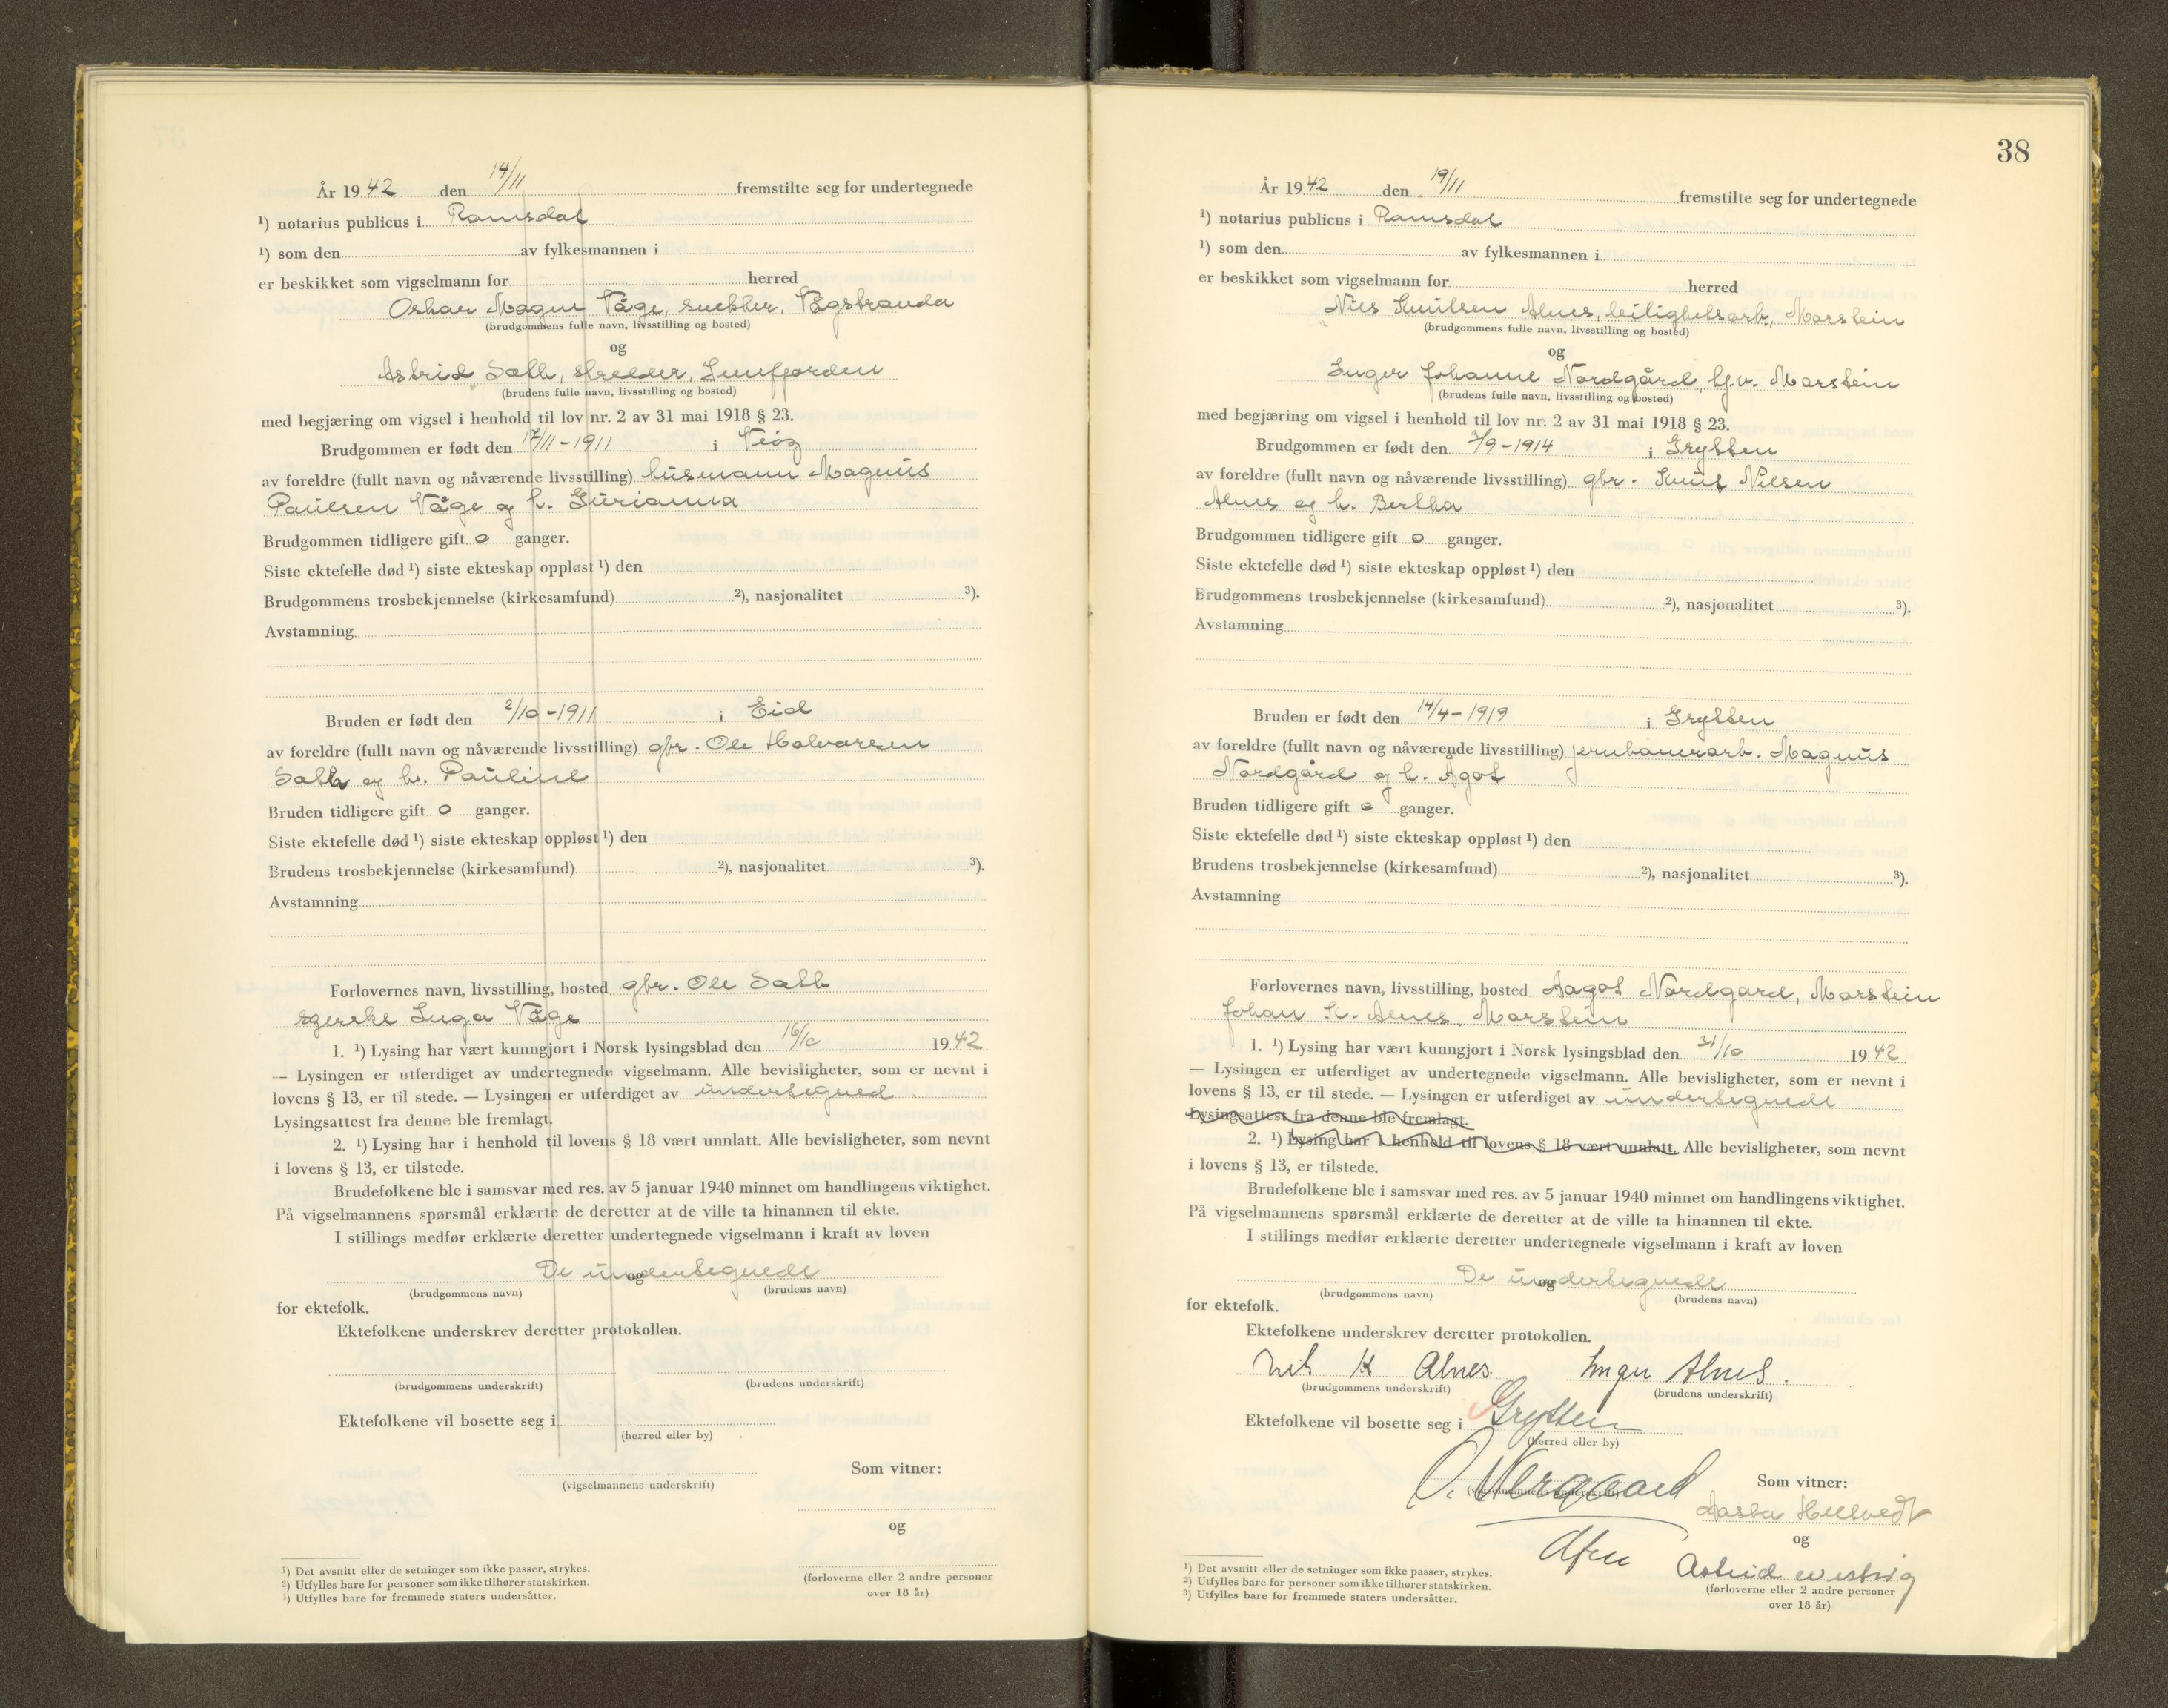 År 1942 den 14/11 fremstilte seg for undertegnede
¹) notarius publicus i Romsdal
¹) som den av fylkesmannen i
er beskikket som vigselmann for herred
Oskar Magnus Våge, snekker, Vågstranda
(brudgommens fulle navn, livsstilling og bosted)
og
Astrid Salth,
(brudens fulle navn, livsstilling og bosted)
med begjæring om vigsel i henhold til lov nr. 2 av 31 mai 1918 § 23.
Brudgommen er født den 17/11-1911 i Veøy
av foreldre (fullt navn og nåværende livsstilling) husmann Magnus
Paulsen Våge og h. Gurianna
Brudgommen tidligere gift 0 ganger.
Siste ektefelle død ¹) siste ekteskap oppløst ¹) den
Brudgommens trosbekjennelse (kirkesamfund) ²), nasjonalitet ³).
Avstamning
Bruden er født den 2/10-1911 i Eid
av foreldre (fullt navn og nåværende livsstilling) gbr. Ole Halvorsen
og h. Pauline
Bruden tidligere gift 0 ganger.
Siste ektefelle død ¹) siste ekteskap oppløst ¹) den
Brudens trosbekjennelse (kirkesamfund) ²), nasjonalitet ³).
Avstamning
Forlovernes navn, livsstilling, bosted gbr. Ole
syerske Inga Våge
1. ¹) Lysing har vært kunngjort i Norsk lysingsblad den 16/10 1942
— Lysingen er utferdiget av undertegnede vigselmann. Alle bevisligheter, som er nevnt i
lovens § 13, er til stede. — Lysingen er utferdiget av undertegned
Lysingsattest fra denne ble fremlagt.
2. ¹) Lysing har i henhold til lovens § 18 vært unnlatt. Alle bevisligheter, som nevnt
i lovens § 13, er tilstede.
Brudefolkene ble i samsvar med res. av 5 januar 1940 minnet om handlingens viktighet.
På vigselmannens spørsmål erklærte de deretter at de ville ta hinannen til ekte.
I stillings medfør erklærte deretter undertegnede vigselmann i kraft av loven
De undertegnede
og
(brudgommens navn) (brudens navn)
for ektefolk.
Ektefolkene underskrev deretter protokollen.
(brudgommens underskrift) (brudens underskrift)
Ektefolkene vil bosette seg i
(herred eller by)
Som vitner:
(vigselmannens underskrift)
og
(forloverne eller 2 andre personer
over 18 år)
¹) Det avsnitt eller de setninger som ikke passer, strykes.
²) Utfylles bare for personer som ikke tilhører statskirken.
³) Utfylles bare for fremmede staters undersåtter.
38
År 1942 den 19/11 fremstilte seg for undertegnede
¹) notarius publicus i Romsdal
¹) som den av fylkesmannen i
er beskikket som vigselmann for herred
Nils Knutsen Alnes, leilighetsarb., Marstein
(brudgommens fulle navn, livsstilling og bosted)
og
Inger Johanne Nordgård, hjv. Marstein
(brudens fulle navn, livsstilling og bosted)
med begjæring om vigsel i henhold til lov nr. 2 av 31 mai 1918 § 23.
Brudgommen er født den /9-1914 i Grytten
av foreldre (fullt navn og nåværende livsstilling) gbr. Knut Nilsen
Alnes og h. Bertha
Brudgommen tidligere gift 0 ganger.
Siste ektefelle død ¹) siste ekteskap oppløst ¹) den
Brudgommens trosbekjennelse (kirkesamfund) ²), nasjonalitet ³).
Avstamning
Bruden er født den 14/4-1919 i Grytten
av foreldre (fullt navn og nåværende livsstilling) jernbanearb. Magnus
Nordgård og h. Ågot
Bruden tidligere gift 0 ganger.
Siste ektefelle død ¹) siste ekteskap oppløst ¹) den
Brudens trosbekjennelse (kirkesamfund) ²), nasjonalitet ³).
Avstamning
Forlovernes navn, livsstilling, bosted Aagot Nordgard, Marstein
Johan K. Alnes, Marstein
1. ¹) Lysing har vært kunngjort i Norsk lysingsblad den 31/10 1942
— Lysingen er utferdiget av undertegnede vigselmann. Alle bevisligheter, som er nevnt i
lovens § 13, er til stede. — Lysingen er utferdiget av undertegnede
Lysingsattest fra denne ble fremlagt.
2. ¹) Lysing har i henhold til lovens § 18 vært unnlatt. Alle bevisligheter, som nevnt
i lovens § 13, er tilstede.
Brudefolkene ble i samsvar med res. av 5 januar 1940 minnet om handlingens viktighet.
På vigselmannens spørsmål erklærte de deretter at de ville ta hinannen til ekte.
I stillings medfør erklærte deretter undertegnede vigselmann i kraft av loven
De undertegnede
og
(brudgommens navn) (brudens navn)
for ektefolk.
Ektefolkene underskrev deretter protokollen.
Nils K Alnes. Inger Alnes.
(brudgommens underskrift) (brudens underskrift)
Ektefolkene vil bosette seg i Grytten
(herred eller by)
Som vitner:
(vigselmannens underskrift)
og
Astrid
(forloverne eller 2 andre personer
over 18 år)
¹) Det avsnitt eller de setninger som ikke passer, strykes.
²) Utfylles bare for personer som ikke tilhører statskirken.
³) Utfylles bare for fremmede staters undersåtter.